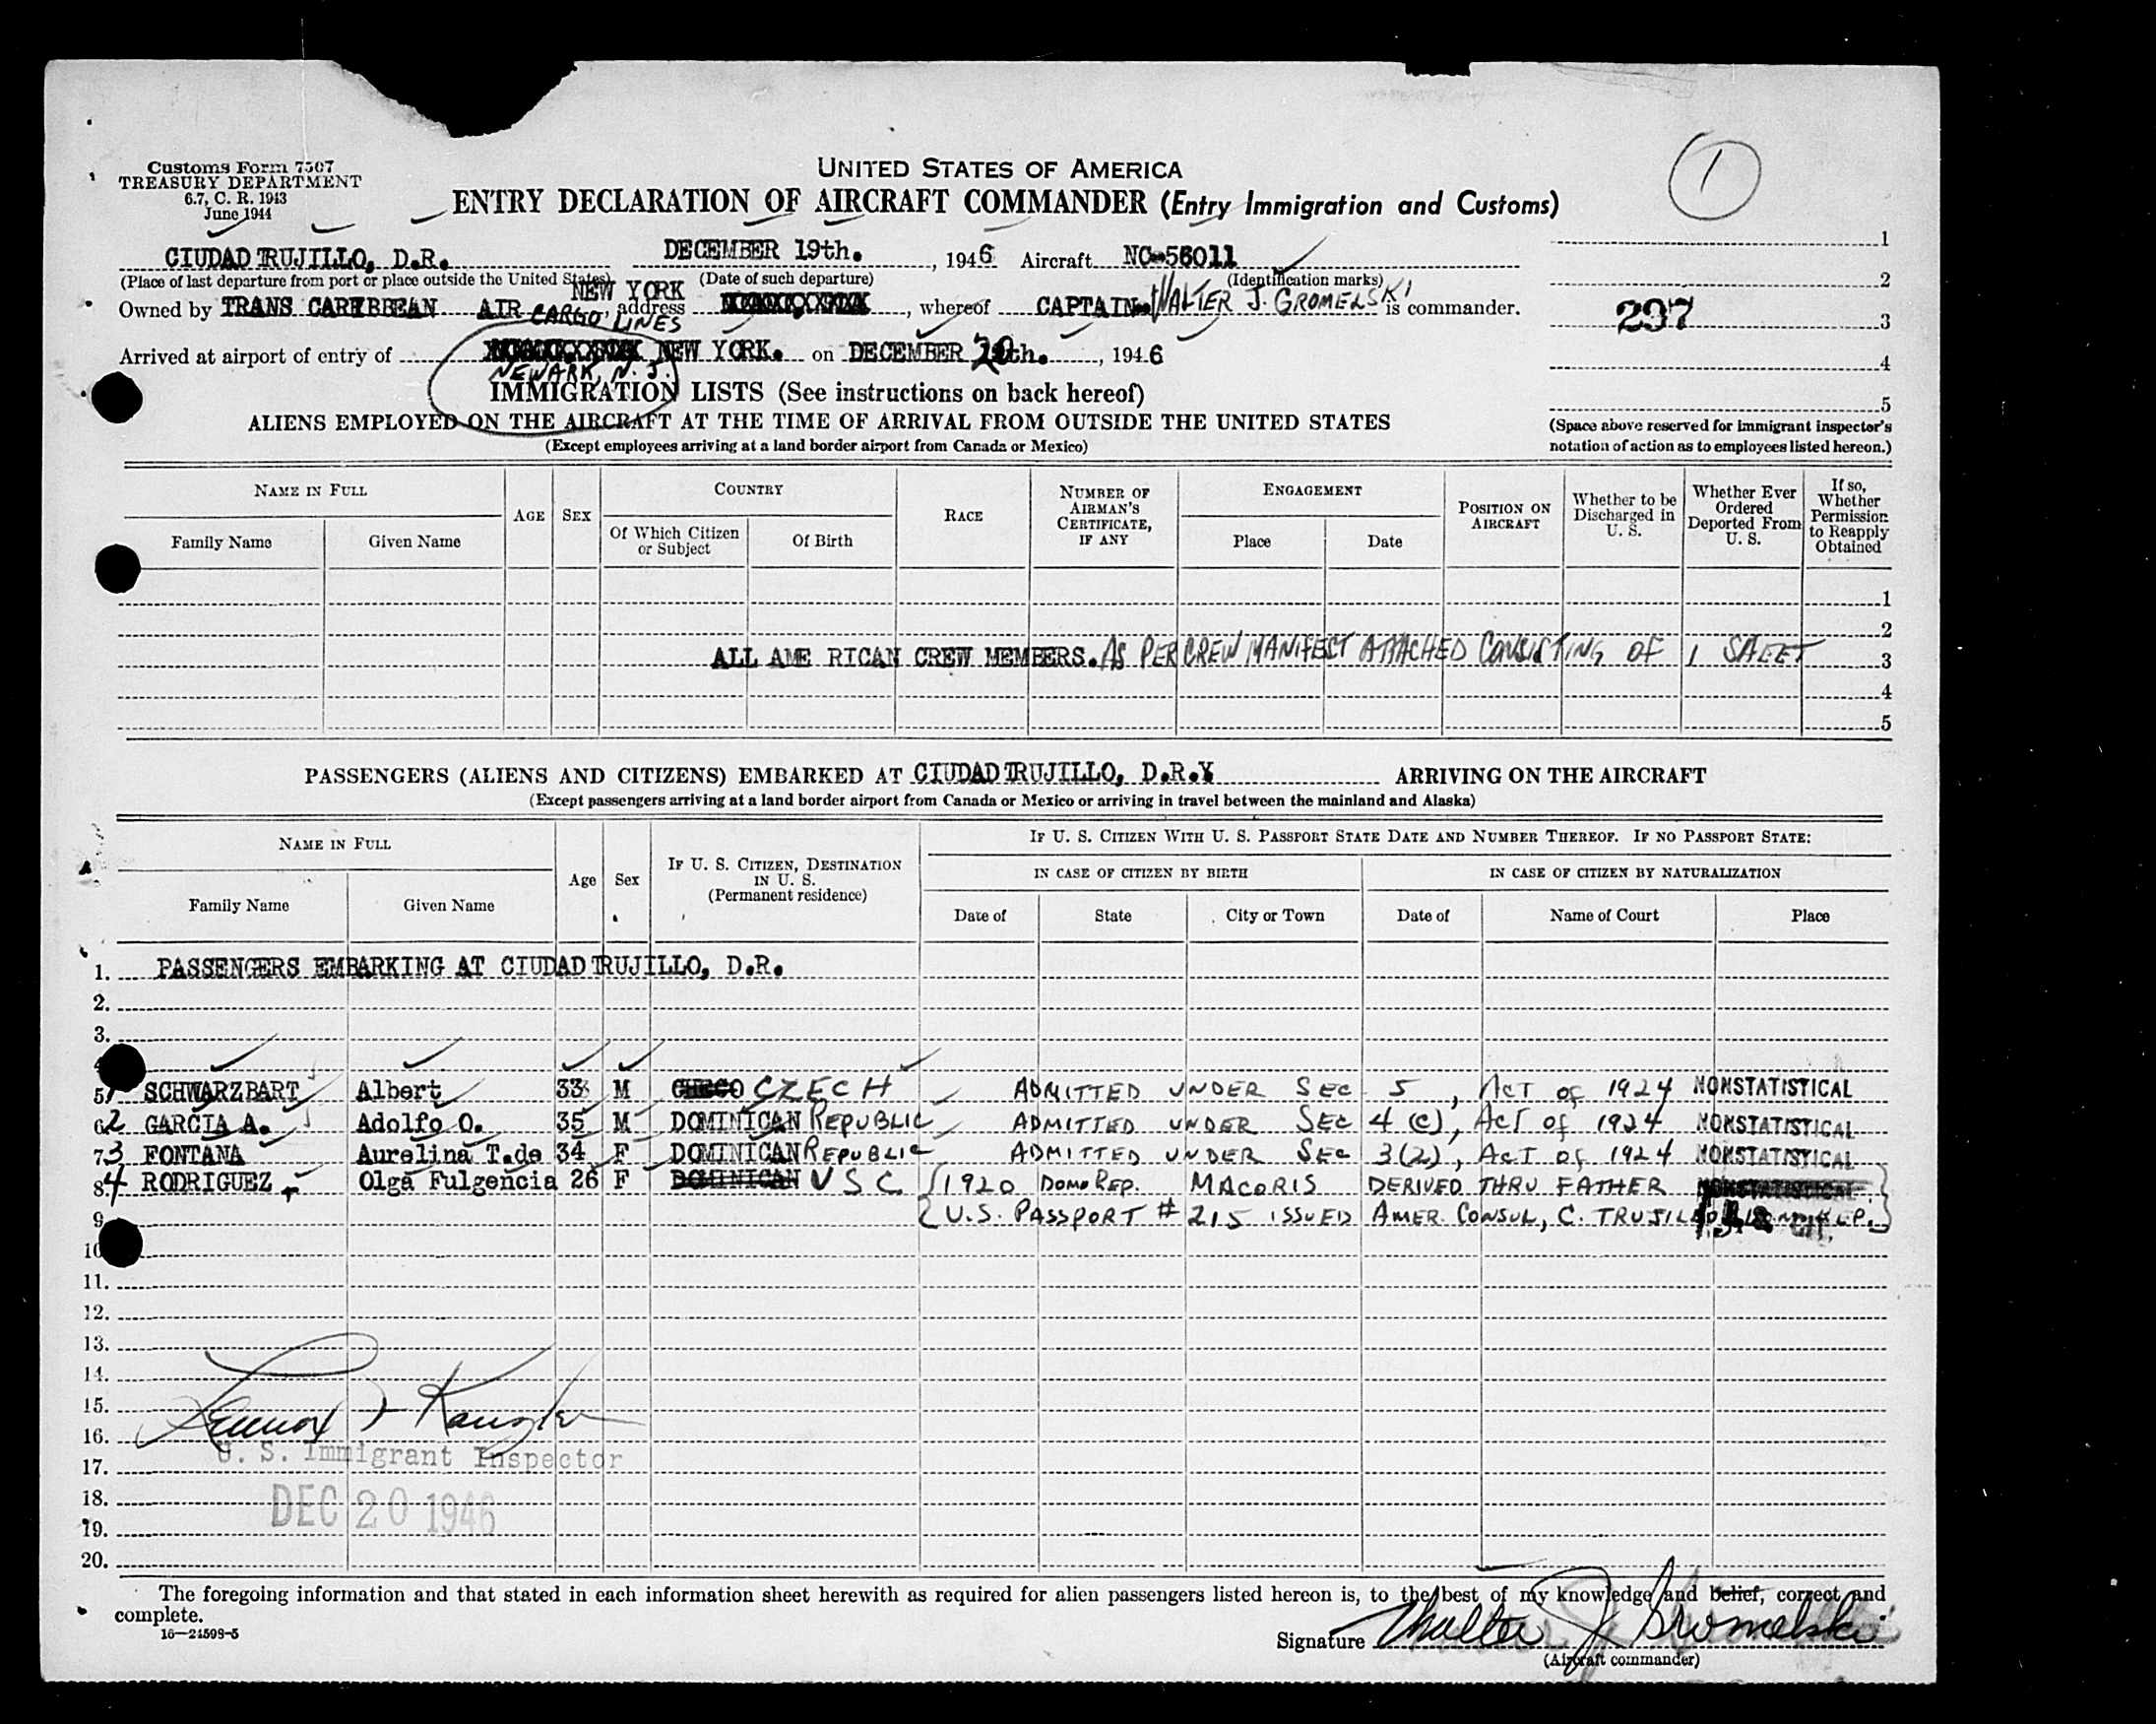 Customs Form 7507
TREASURY DEPARTMENT
6.7, C. R. 1943
June 1944
UNITED STATES OF AMERICA
ENTRY DECLARATION OF AIRCRAFT COMMANDER (Entry Immigration and Customs)
1
CIUDAD TRUJILLO, D.R. DECEMBER 19th., 1946 Aircraft NC-56011
(Place of last departure from port or place outside the United States) (Date of such departure) (Identification marks)
NEW YORK
Owned by TRANS CARIBBEAN AIR CARGO LINES, address , whereof CAPTAIN. WALTER J. GROMELSKI is commander.
Arrived at airport of entry of NEW YORK. on DECEMBER 20th., 1946
NEWARK, N. J.
1
2
297
3
4
5
(Space above reserved for immigrant inspector's
notation of action as to employees listed hereon.)
IMMIGRATION LISTS (See instructions on back hereof)
ALIENS EMPLOYED ON THE AIRCRAFT AT THE TIME OF ARRIVAL FROM OUTSIDE THE UNITED STATES
(Except employees arriving at a land border airport from Canada or Mexico)
NAME IN FULL
Family Name Given Name
AGE SEX
COUNTRY
Of Which Citizen or Subject Of Birth
RACE
NUMBER OF AIRMAN'S CERTIFICATE, IF ANY
ENGAGEMENT
Place Date
POSITION ON AIRCRAFT
Whether to be Discharged in U. S.
Whether Ever Ordered Deported From U. S.
If so, Whether Permission to Reapply Obtained
1
2
ALL AME RICAN CREW MEMBERS. AS PER CREW MANIFEST ATTACHED CONSISTING OF 1 SHEET 3
4
5
PASSENGERS (ALIENS AND CITIZENS) EMBARKED AT CIUDAD TRUJILLO, D.R. ARRIVING ON THE AIRCRAFT
(Except passengers arriving at a land border airport from Canada or Mexico or arriving in travel between the mainland and Alaska)
NAME IN FULL
Family Name Given Name
Age Sex
IF U. S. CITIZEN, DESTINATION IN U. S.
(Permanent residence)
IF U. S. CITIZEN WITH U. S. PASSPORT STATE DATE AND NUMBER THEREOF. IF NO PASSPORT STATE:
IN CASE OF CITIZEN BY BIRTH IN CASE OF CITIZEN BY NATURALIZATION
Date of State City or Town Date of Name of Court Place
1. PASSENGERS EMBARKING AT CIUDAD TRUJILLO, D.R.
2.
3.
4
5 1 SCHWARZBART Albert 33 M CZECH ADMITTED UNDER SEC 5, ACT OF 1924 NONSTATISTICAL
6 2 GARCIA A. Adolfo O. 35 M DOMINICAN REPUBLIC ADMITTED UNDER SEC 4 (C), ACT OF 1924 NONSTATISTICAL
7 3 FONTANA Aurelina T.de 34 F DOMINICAN REPUBLIC ADMITTED UNDER SEC 3(2), ACT OF 1924 NONSTATISTICAL
8. 4 RODRIGUEZ Olga Fulgencia 26 F DOMINICAN U S C 1920 DOMO REP. MACORIS DERIVED THRU FATHER NONSTATISTICAL
9 U.S. PASSPORT # 215 ISSUED AMER. CONSUL, C. TRUJILLO
10
11.
12.
13.
14.
15.
16.
U. S. Immigrant Inspector
17.
18.
DEC 20 1946
19.
20.
The foregoing information and that stated in each information sheet herewith as required for alien passengers listed hereon is, to the best of my knowledge and belief, correct and
complete.
16—24598-5
Signature Walter J Gromelski
(Aircraft commander)